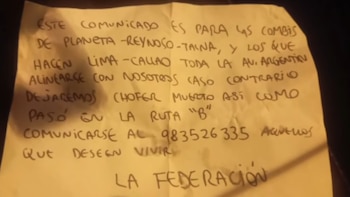 ESTE COMUNICADO ES PARA LAS COMBIS
DE PLANETA-REYNOSO-TAINA, Y LOS QUE
HACEN LIMA-CALLAO TODA LA AV. ARGENTINA
ALINEARSE CON NOSOTROS CASO CONTRARIO
DEJAREMOS CHOFER MUERTO ASI COMO
PASÓ EN LA RUTA "B"
COMUNICARSE AL 983526335 AQUELLOS
QUE DESEEN VIVIR
LA FEDERACIÓN